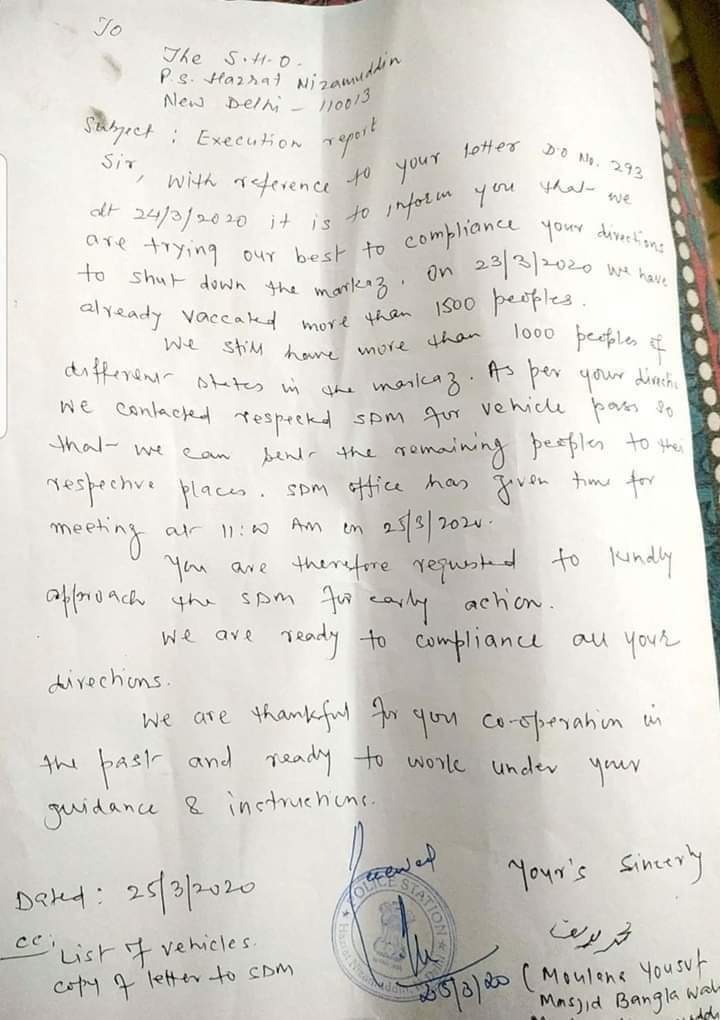 To
The S.H.O.
P.S. Hazrat Nizamuddin
New Delhi - 110013
Subject : Execution report
Sir,
With reference to your letter D.O No. 293
dt 24/3/2020 it is to inform you that we
are trying our best to compliance your directions
to shut down the markaz. On 23/3/2020 we have
already vaccated more than 1500 peoples.
We still have more than 1000 peoples of
different states in the markaz. As per your directi
we contacted respected SDM for vehicle pass so
that we can sent the remaining peoples to their
respective places. SDM office has given time for
meeting at 11:00 AM on 25/3/2020.
You are therefore requested to kindly
approach the SDM for early action.
We are ready to compliance all your
directions.
We are thankful for you co-operation in
the past and ready to work under your
guidance & instructions.
Dated : 25/3/2020
cc:
List of vehicles.
copy of letter to SDM
Received
POLICE STATION
Hazrat Nizamuddin, N. Delhi
25/3/20
Your's Sincerly
محمد یوسف
(Moulana Yousuf
Masjid Bangla Wali